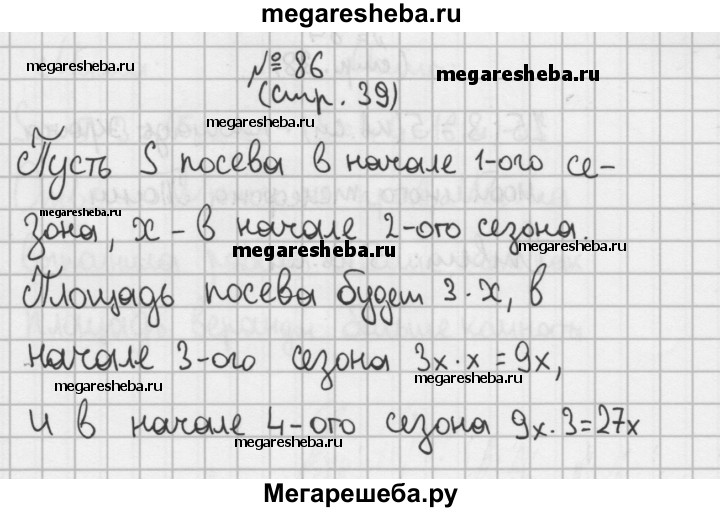 megaresheba.ru
№ 86
megaresheba.ru
megaresheba.ru
(стр. 39)
megaresheba.ru
Пусть S посева в начале 1-ого се-
megaresheba.ru
зона, x - в начале 2-ого сезона.
megaresheba.ru
Площадь посева будет 3·x, в
начале 3-ого сезона 3x·x = 9x,
megaresheba.ru
megaresheba.ru
и в начале 4-ого сезона 9x·3=27x
megaresheba.ru
Мегарешеба.ру